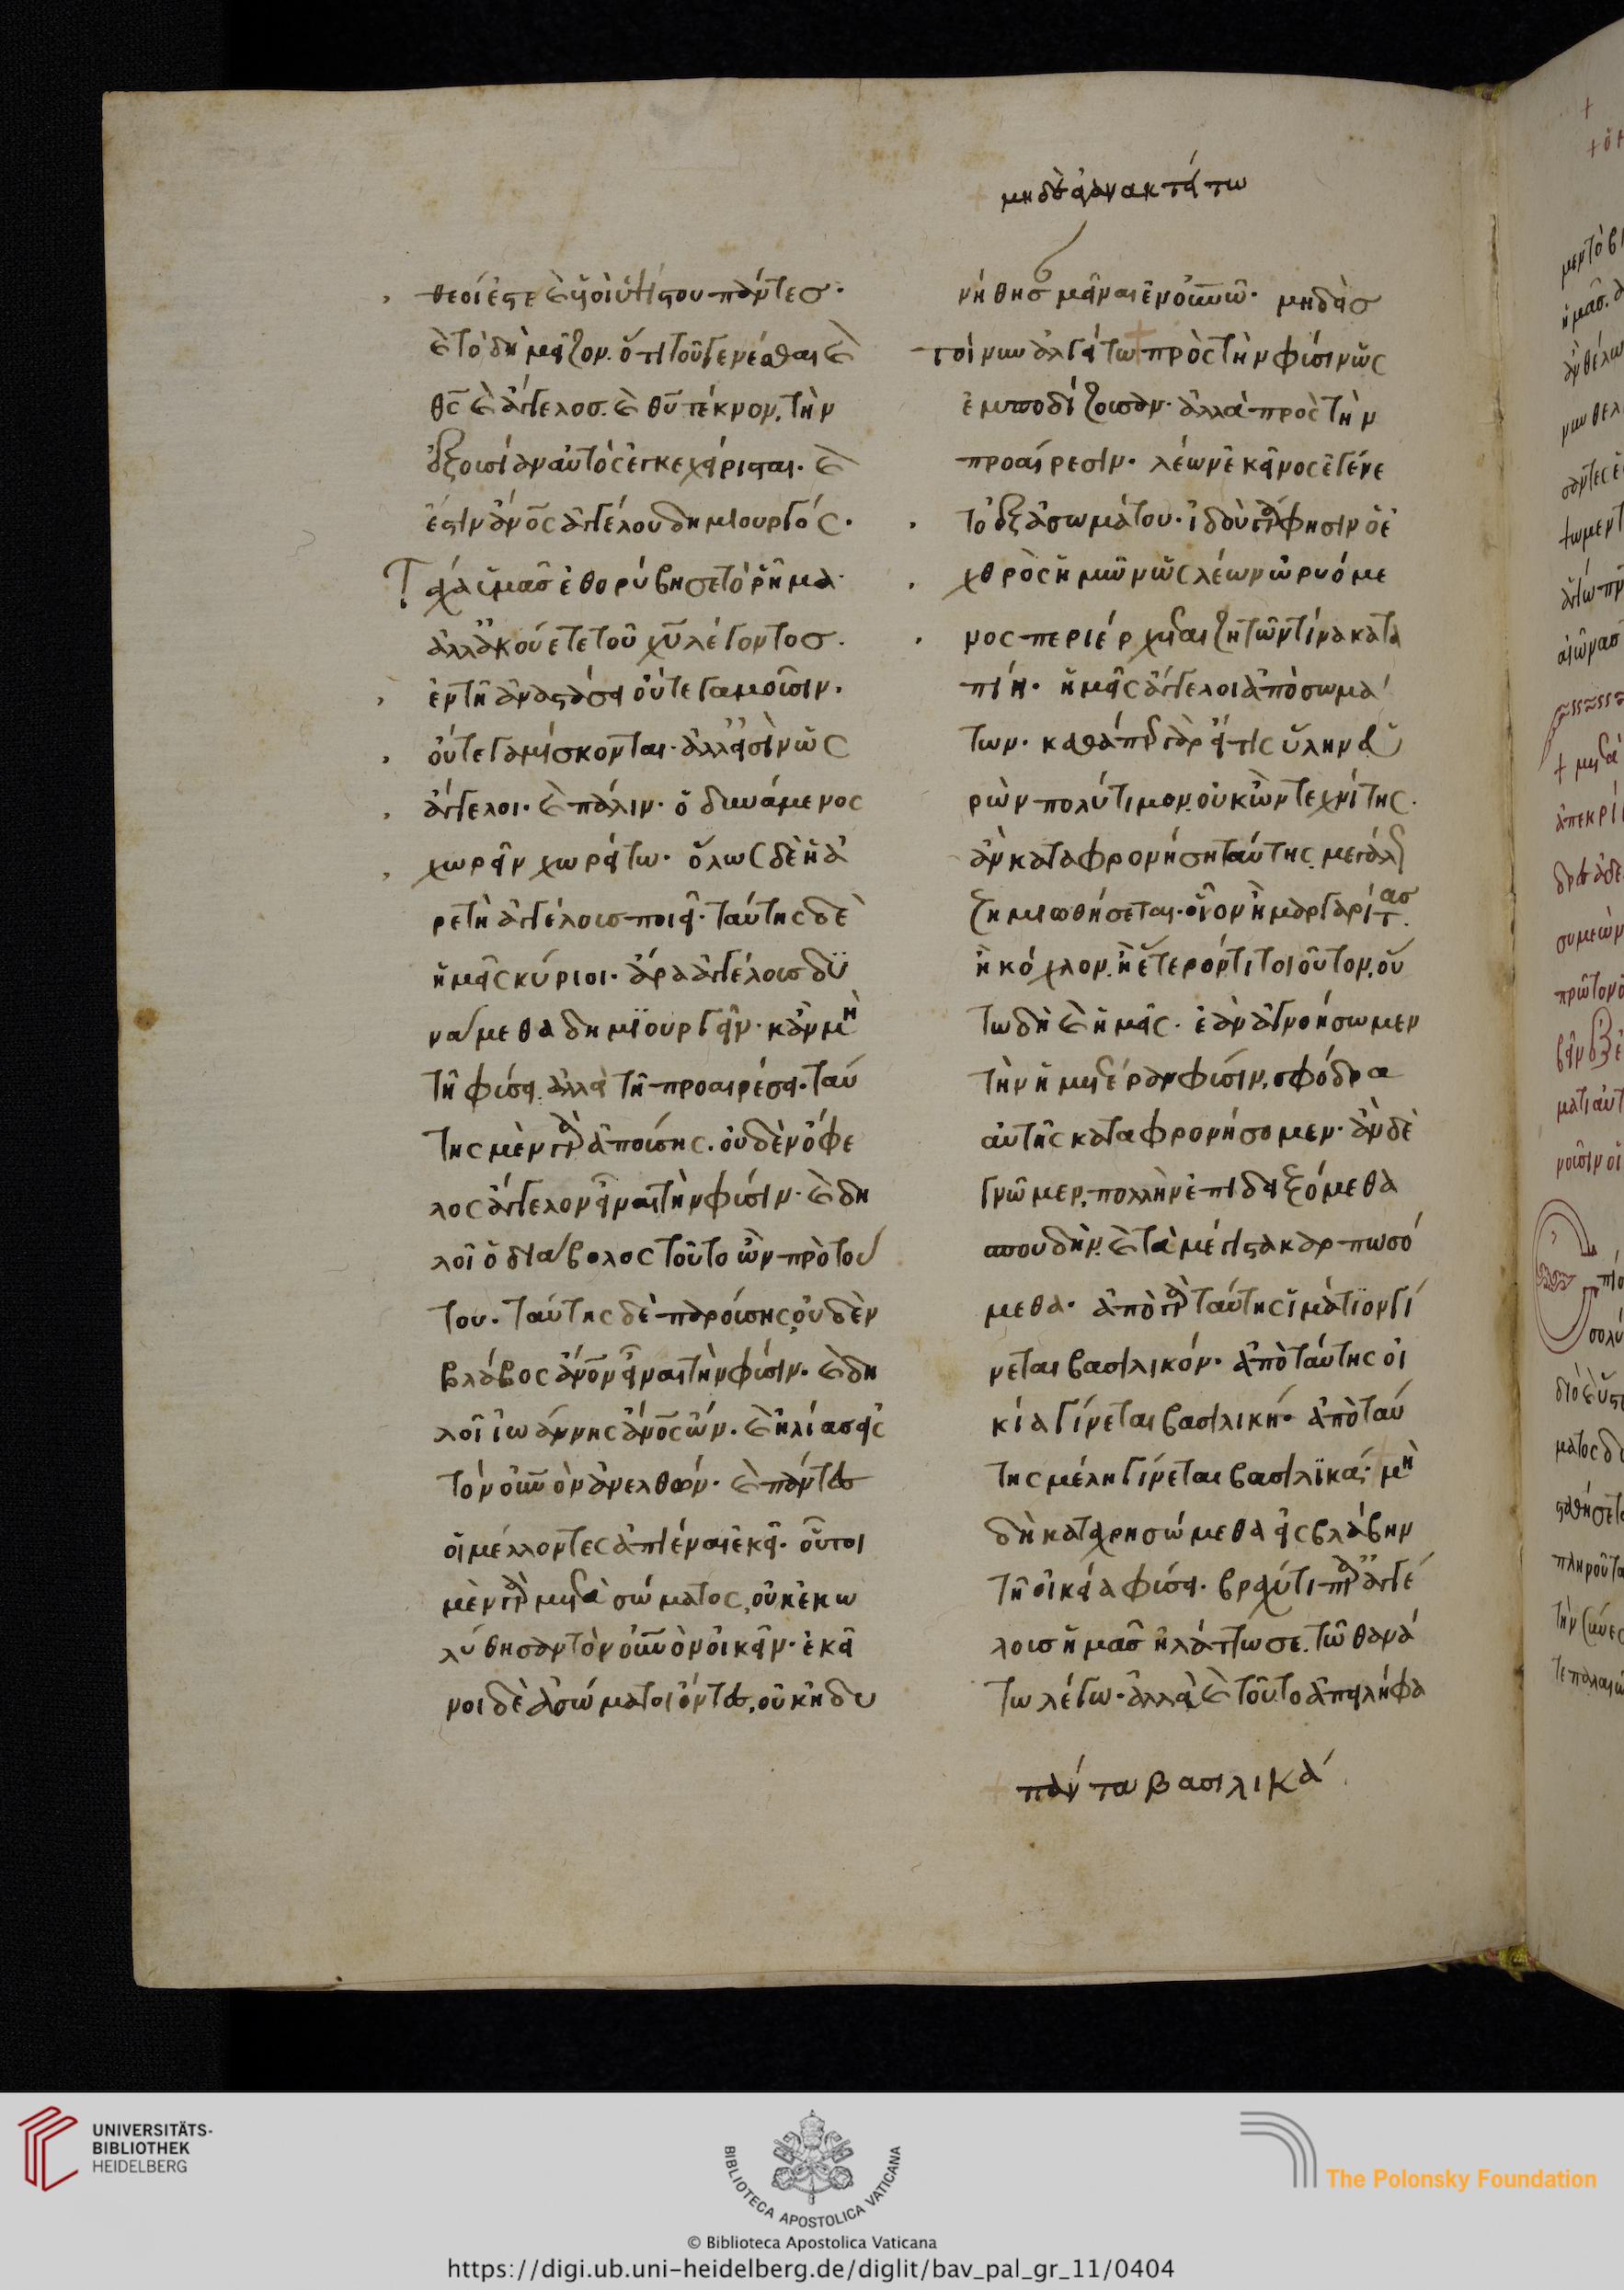 μηδὲ ἀγανακτείτω
θεοί ἐστε καὶ υἱοὶ ὑψίστου πάντες·
καὶ τὸ δὴ μεῖζον. ὅτι τοῦ γενέσθαι καὶ
θς καὶ ἄγγελος. καὶ θυ τέκνον, τὴν
ἐξουσίαν αὐτὸς ἐγκεχείρισται. καὶ
ἔστιν ἄνος ἀγγέλου δημιουργός.
Τάχα ὑμᾶς ἐθορύβησε τὸ ῥῆμα·
ἀλλ' ἀκούετε τοῦ χυ λέγοντος.
ἐν τῆ ἀναστάσει οὔτε γαμοῦσιν.
οὔτε γαμίσκονται. ἀλλ' εἰσὶν ὡς
ἄγγελοι. καὶ πάλιν. ὁ δυνάμενος
χωρεῖν χωρείτω. ὅλως δὲ ἡ ἀ
ρετὴ ἀγγέλους ποιεῖ. ταύτης δὲ
ἡμεῖς κύριοι. ἄρα ἀγγέλους δϋ
νάμεθα δημϊουργεῖν. κἂν μὴ
τῆ φύσει. ἀλλὰ τῆ προαιρέσει. ταύ
της μὲν γὰρ ἀπούσης. οὐδὲν ὄφε
λος ἄγγελον εἶναι τὴν φύσιν. καὶ δη
λοῖ ὁ διάβολος τοῦτο ὢν πρὸ τού
του. ταύτης δὲ παρούσης, οὐδὲν
βλάβος ἄνον εἶναι τὴν φύσιν. καὶ δη
λοῖ ἰωάννης ἄνος ὤν. καὶ ἠλίας εἰς
τὸν οὐνὸν ἀνελθών. καὶ πάντες
οἱ μέλλοντες ἀπιέναι ἐκεῖ. οὗτοι
μὲν γὰρ μετὰ σώματος, οὐκ ἐκω
λύθησαν τὸν οὐνὸν οἰκεῖν. ἐκεῖ
νοι δὲ ἀσώματοι ὄντες, οὐκ ἠδυ
νήθησ μεῖναι ἐν οὐνῶ. μηδεὶς
τοίνυν ἀλγείτω πρὸς τὴν φύσιν ὡς
ἐμποδίζουσαν. ἀλλὰ πρὸς τὴν
προαίρεσιν. λέων ἐκεῖνος ἐγένε
το ἐξ ἀσωμάτου. ἰδοὺ γὰρ φησὶν ὁ ἐ
χθρὸς ἡμῶν ὡς λέων ὠρυόμε
νος περιέρχεται ζητῶν τίνα κατα
πίη. ἡμεῖς ἄγγελοι ἀπὸ σωμά
των. καθάπερ γὰρ εἴ τις ὕλην εὑ
ρὼν πολύτιμον. οὐκ ὢν τεχνίτης.
ἂν καταφρονήση ταύτης. μεγάλα
ζημιωθήσεται. οἷον ἢ μαργαρίτας
ἢ κόχλον. ἢ ἕτερόν τι τοιοῦτον. οὕ
τω δὴ καὶ ἡμεῖς. ἐὰν ἀγνοήσωμεν
τὴν ἡμετέραν φύσιν, σφόδρα
αὐτῆς καταφρονήσομεν. ἂν δὲ
γνῶμεν, πολλὴν ἐπιδειξόμεθα
σπουδήν. καὶ τὰ μέγιστα καρπωσό
μεθα. ἀπὸ γὰρ ταύτης ἱμάτϊον γί
νεται βασιλικόν. ἀπὸ ταύτης οἰ
κία γίνεται βασιλική. ἀπὸ ταύ
της μέλη γίνεται βασιλϊκά. μὴ
δὴ καταχρησώμεθα εἰς βλάβην
τῆ οἰκεία φύσει. βραχύ τι παρ' ἀγγέ
λους ἡμᾶς ἠλάττωσε. τῶ θανά
τω λέγω. ἀλλὰ καὶ τοῦτο ἀπειλήφα
πάντα βασιλικά
UNIVERSITÄTS-
BIBLIOTHEK
HEIDELBERG
BIBLIOTECA APOSTOLICA VATICANA
© Biblioteca Apostolica Vaticana
The Polonsky Foundation
https://digi.ub.uni-heidelberg.de/diglit/bav_pal_gr_11/0404